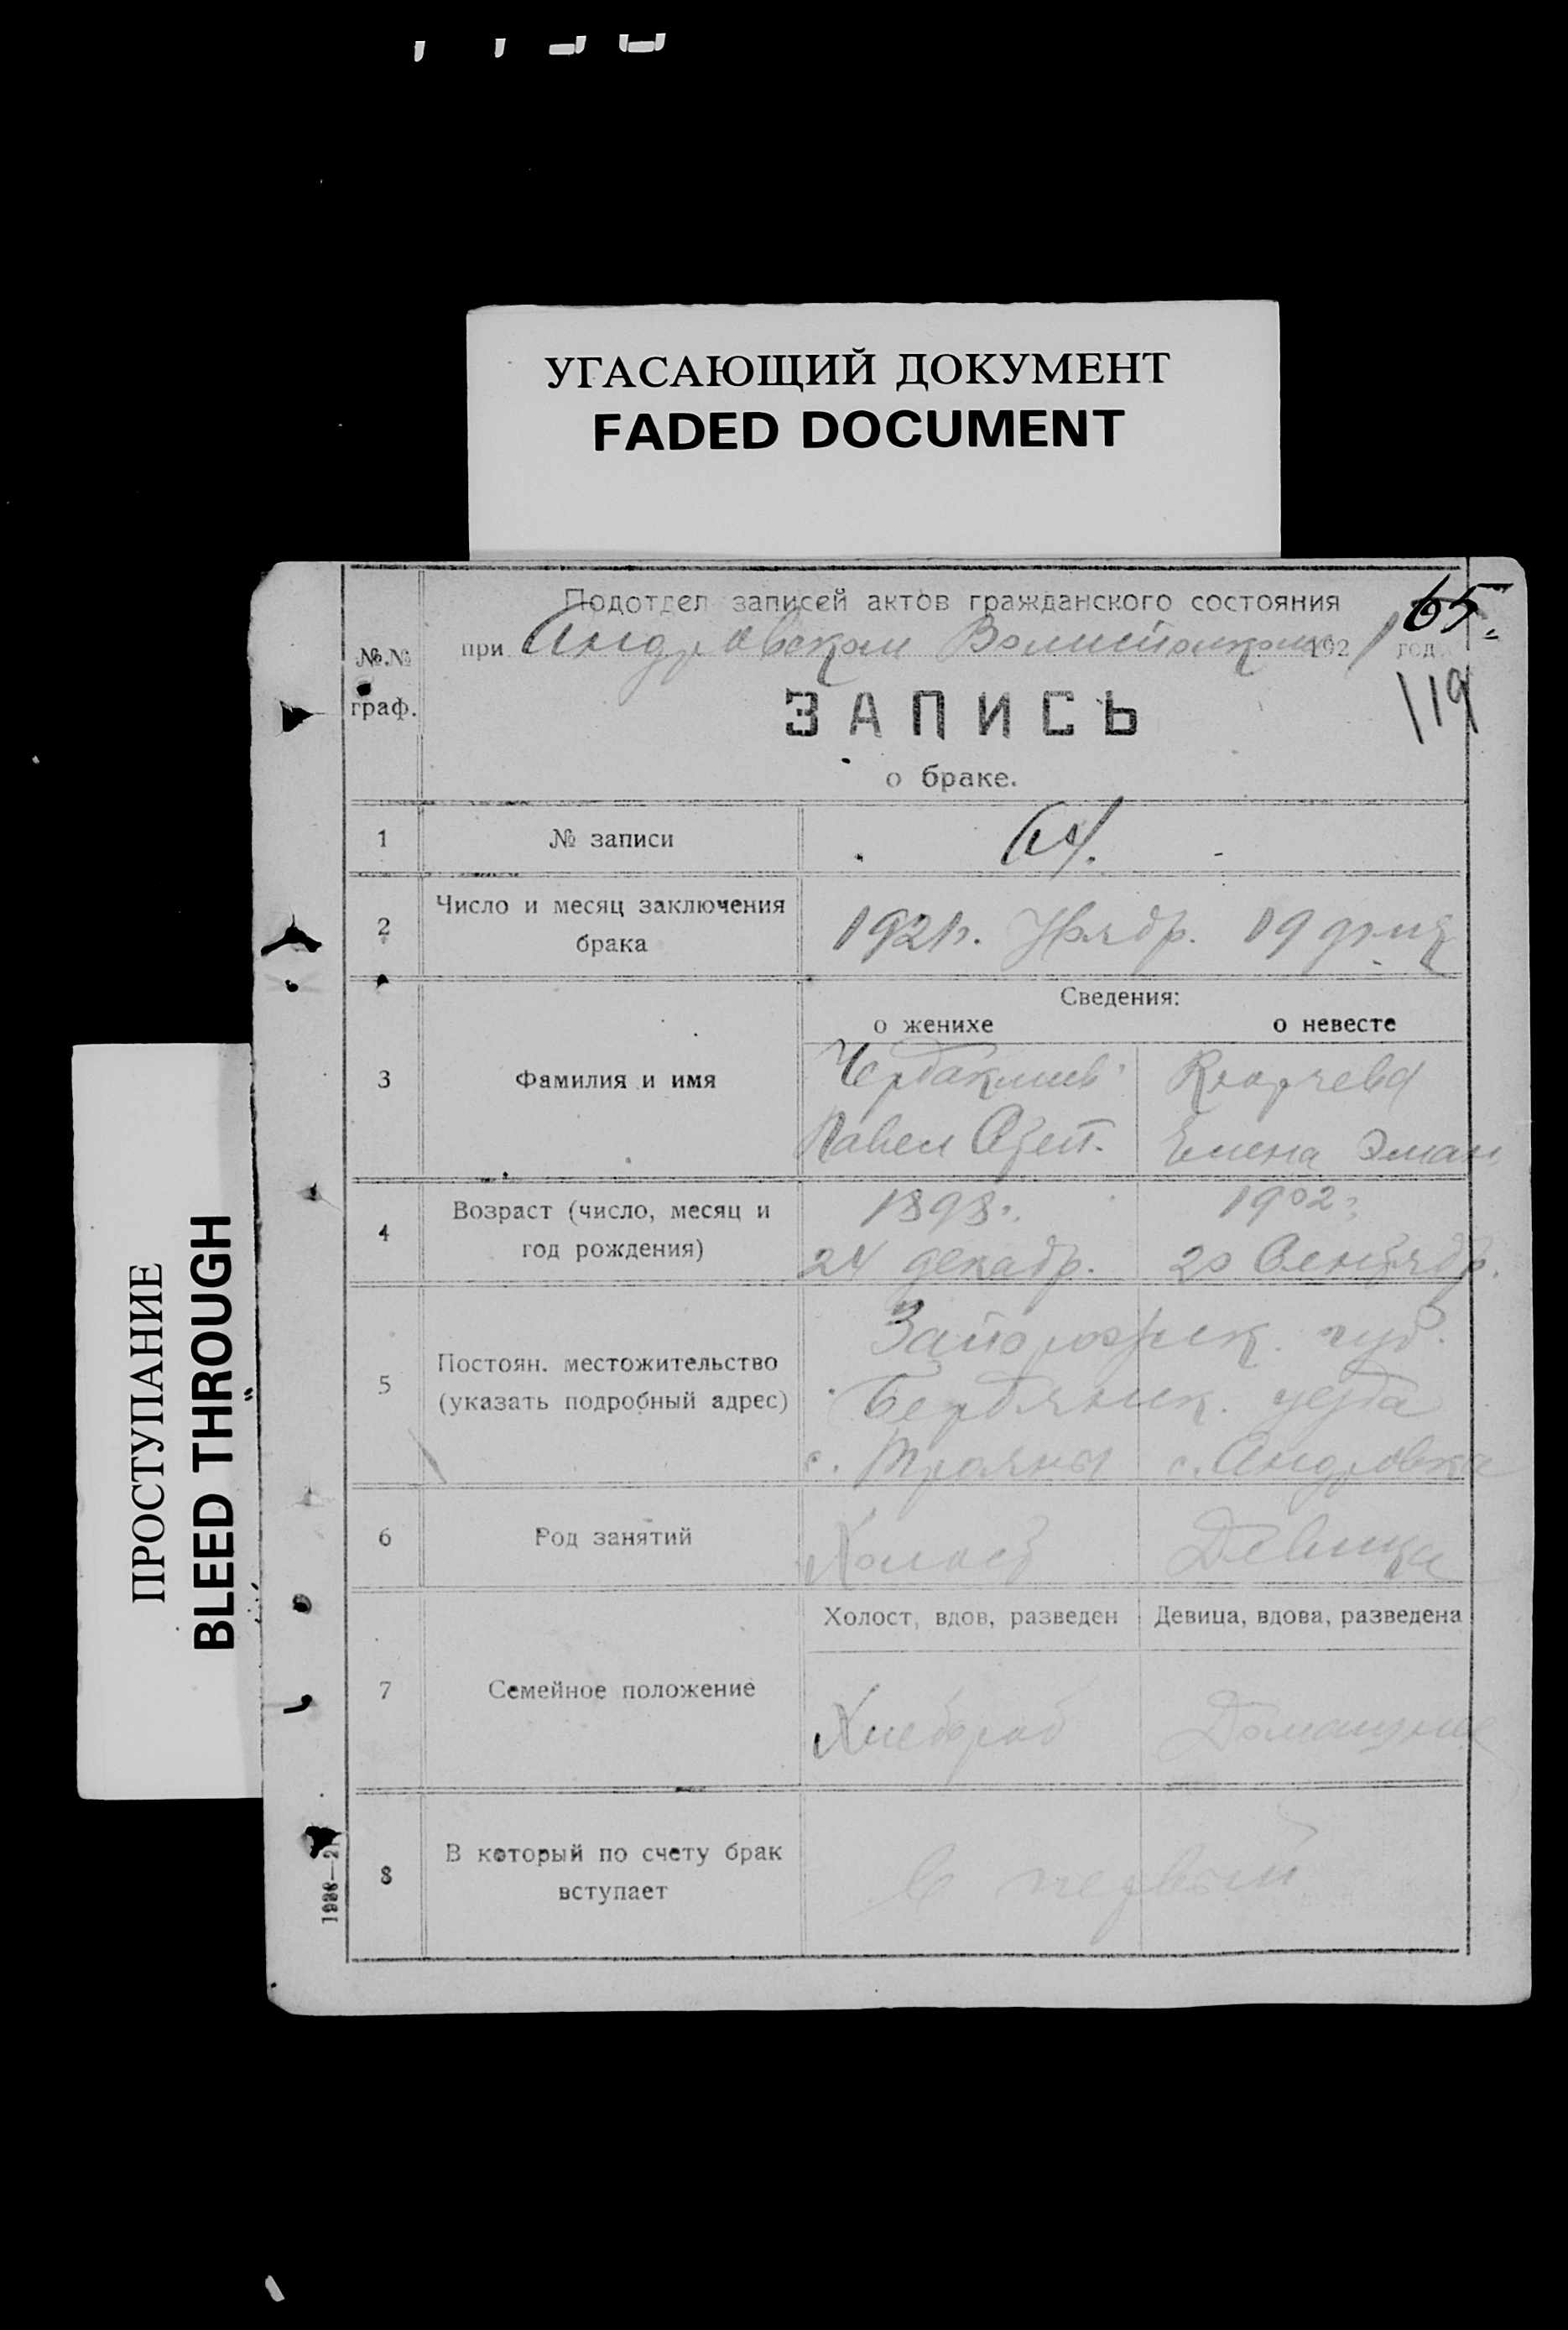 УГАСАЮЩИЙ ДОКУМЕНТ
FADED DOCUMENT
ПРОСТУПАНИЕ
BLEED THROUGH
65.
Подотдел записей актов гражданского состояния
при Андровском 1921 год.
119
№.№
граф.
ЗАПИСЬ
о браке.
1 № записи 64.
2 Число и месяц заключения
брака
1921г. Ноябр. 19 дня
Сведения:
о женихе о невесте
3 Фамилия и имя
Павел
Елена
4 Возраст (число, месяц и
год рождения)
1898г. 1902г.
24 декабр. 20 Сентябр.
5 Постоян. местожительство
(указать подробный адрес)
Запорожск. губ.
Бердянск. уезда
с. Трояны с. Андровка
6 Род занятий Холост Девица
Холост, вдов, разведен Девица, вдова, разведена
7 Семейное положение
Хлебороб
8 В который по счету брак
вступает
в первый